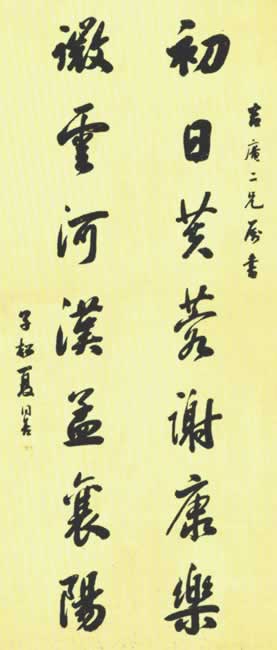 吉庵二兄屬書
初日芙蓉謝康樂
微雲河漢孟襄陽
子松夏同善